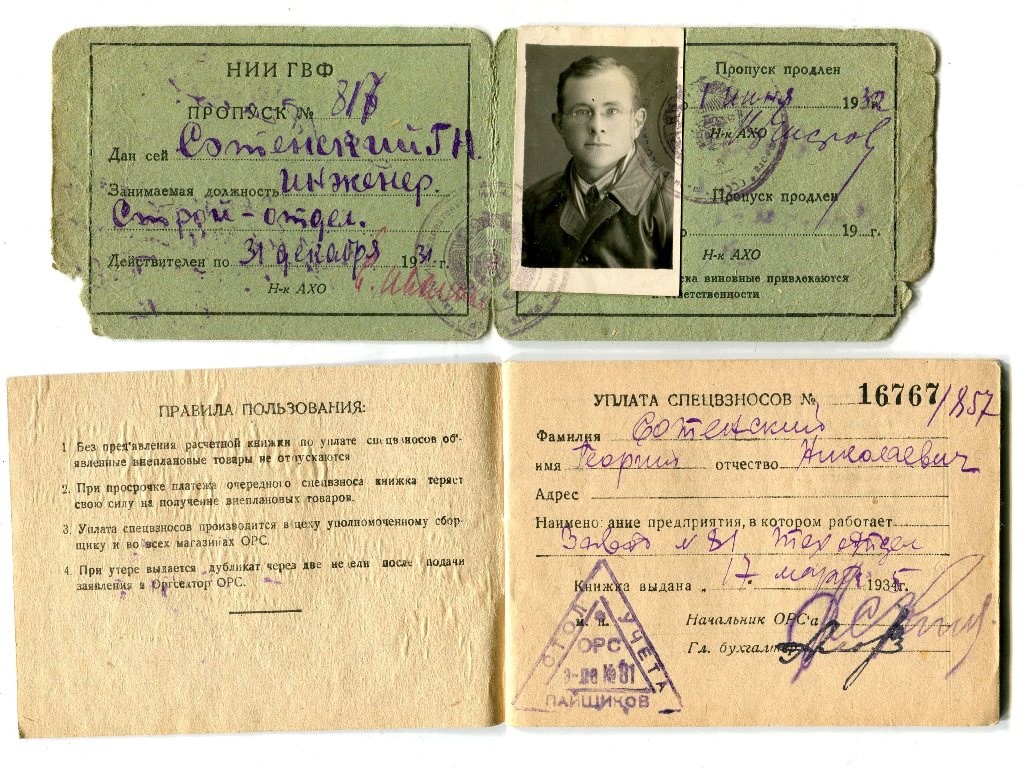 НИИ ГВФ
ПРОПУСК № 817
Дан сей Сотенский Г.Н.
Занимаемая должность инженер.
Строй-отдел.
Действителен по 31 декабря 1931 г.
Н-к АХО
Пропуск продлен
1 июня 1932
Н-к АХО
Пропуск продлен
19 г.
Н-к АХО
виновные привлекаются
ответственности
ПРАВИЛА ПОЛЬЗОВАНИЯ:
1. Без пред'явления расчетной книжки по уплате спецвзносов об'-
явленные внеплановые товары не отпускаются
2. При просрочке платежа очередного спецвзноса книжка теряет
свою силу на получение внеплановых товаров.
3. Уплата спецвзносов производится в цеху уполномоченному сбор-
щику и во всех магазинах ОРС.
4. При утере выдается дубликат через две недели после подачи
заявления в Оргсектор ОРС.
УПЛАТА СПЕЦВЗНОСОВ № 16767/857
Фамилия Сотенский
имя Георгий отчество Николаевич
Адрес
Наименование предприятия, в котором работает
Завод № 81 Техотдел
Книжка выдана „17 марта 1934 г.
м. п.
Начальник ОРС'а
Гл. бухгалтер
СТОЛ УЧЕТА
ОРС
з-да № 81
ПАЙЩИКОВ